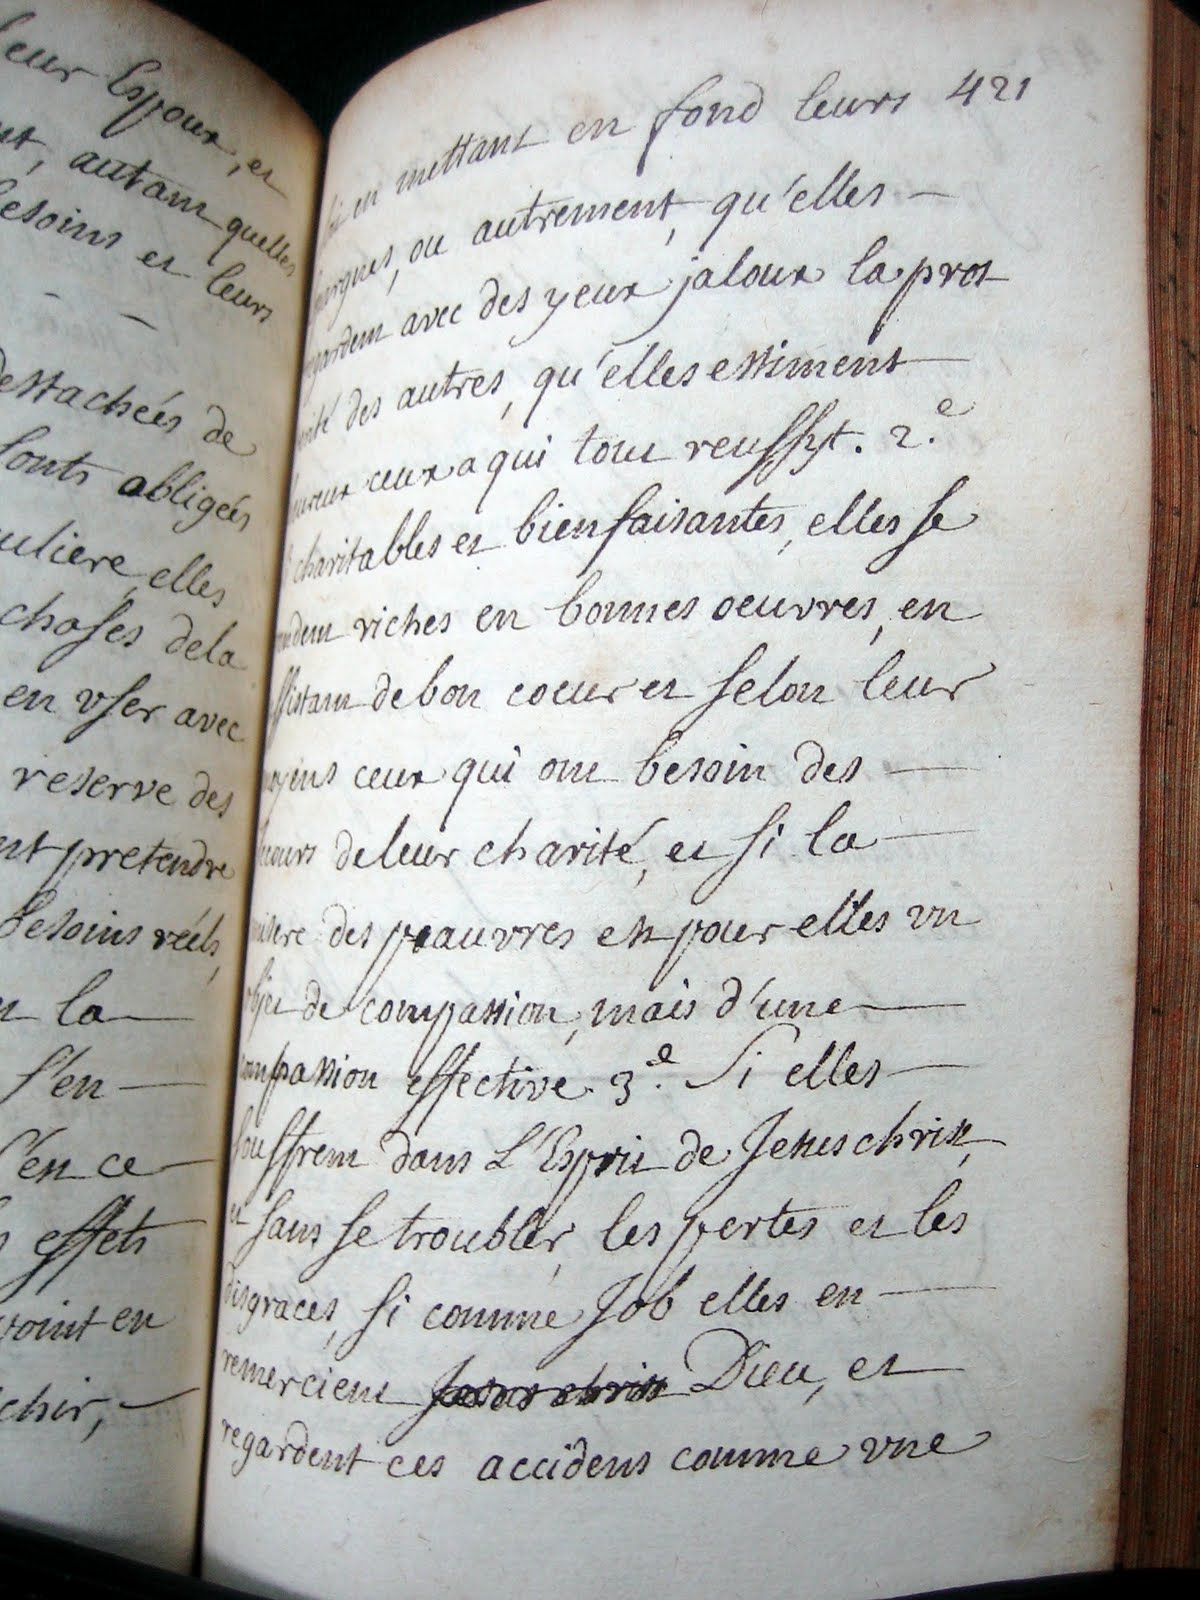 leur Epoux, et
autant quelles
besoins et leurs
destachées de
sont obligées
elles
choses dela
en vser avec
reserve des
pretendre
besoins réels,
la
s'en
s'en ce
effets
en
421
en mettant en fond leurs
ou autrement, qu'elles
avec des yeux jaloux la pros
des autres, qu'elles estiment
ceux a qui tout reussyt. 2.e
charitables et bienfaisantes, elles se
riches en bonnes oeuvres, en
de bon coeur et selon leur
ceux qui ont besoin des
de leur charité, et si la
des pauvres est pour elles vn
de compassion, mais d'une
compassion effective. 3.e Si elles
souffrent dans L'Esprit de Jesuschrist,
et sans se troubler, les pertes et les
disgraces, si comme Job elles en
remercient Jesus christ Dieu, et
regardent ces accidens comme vne